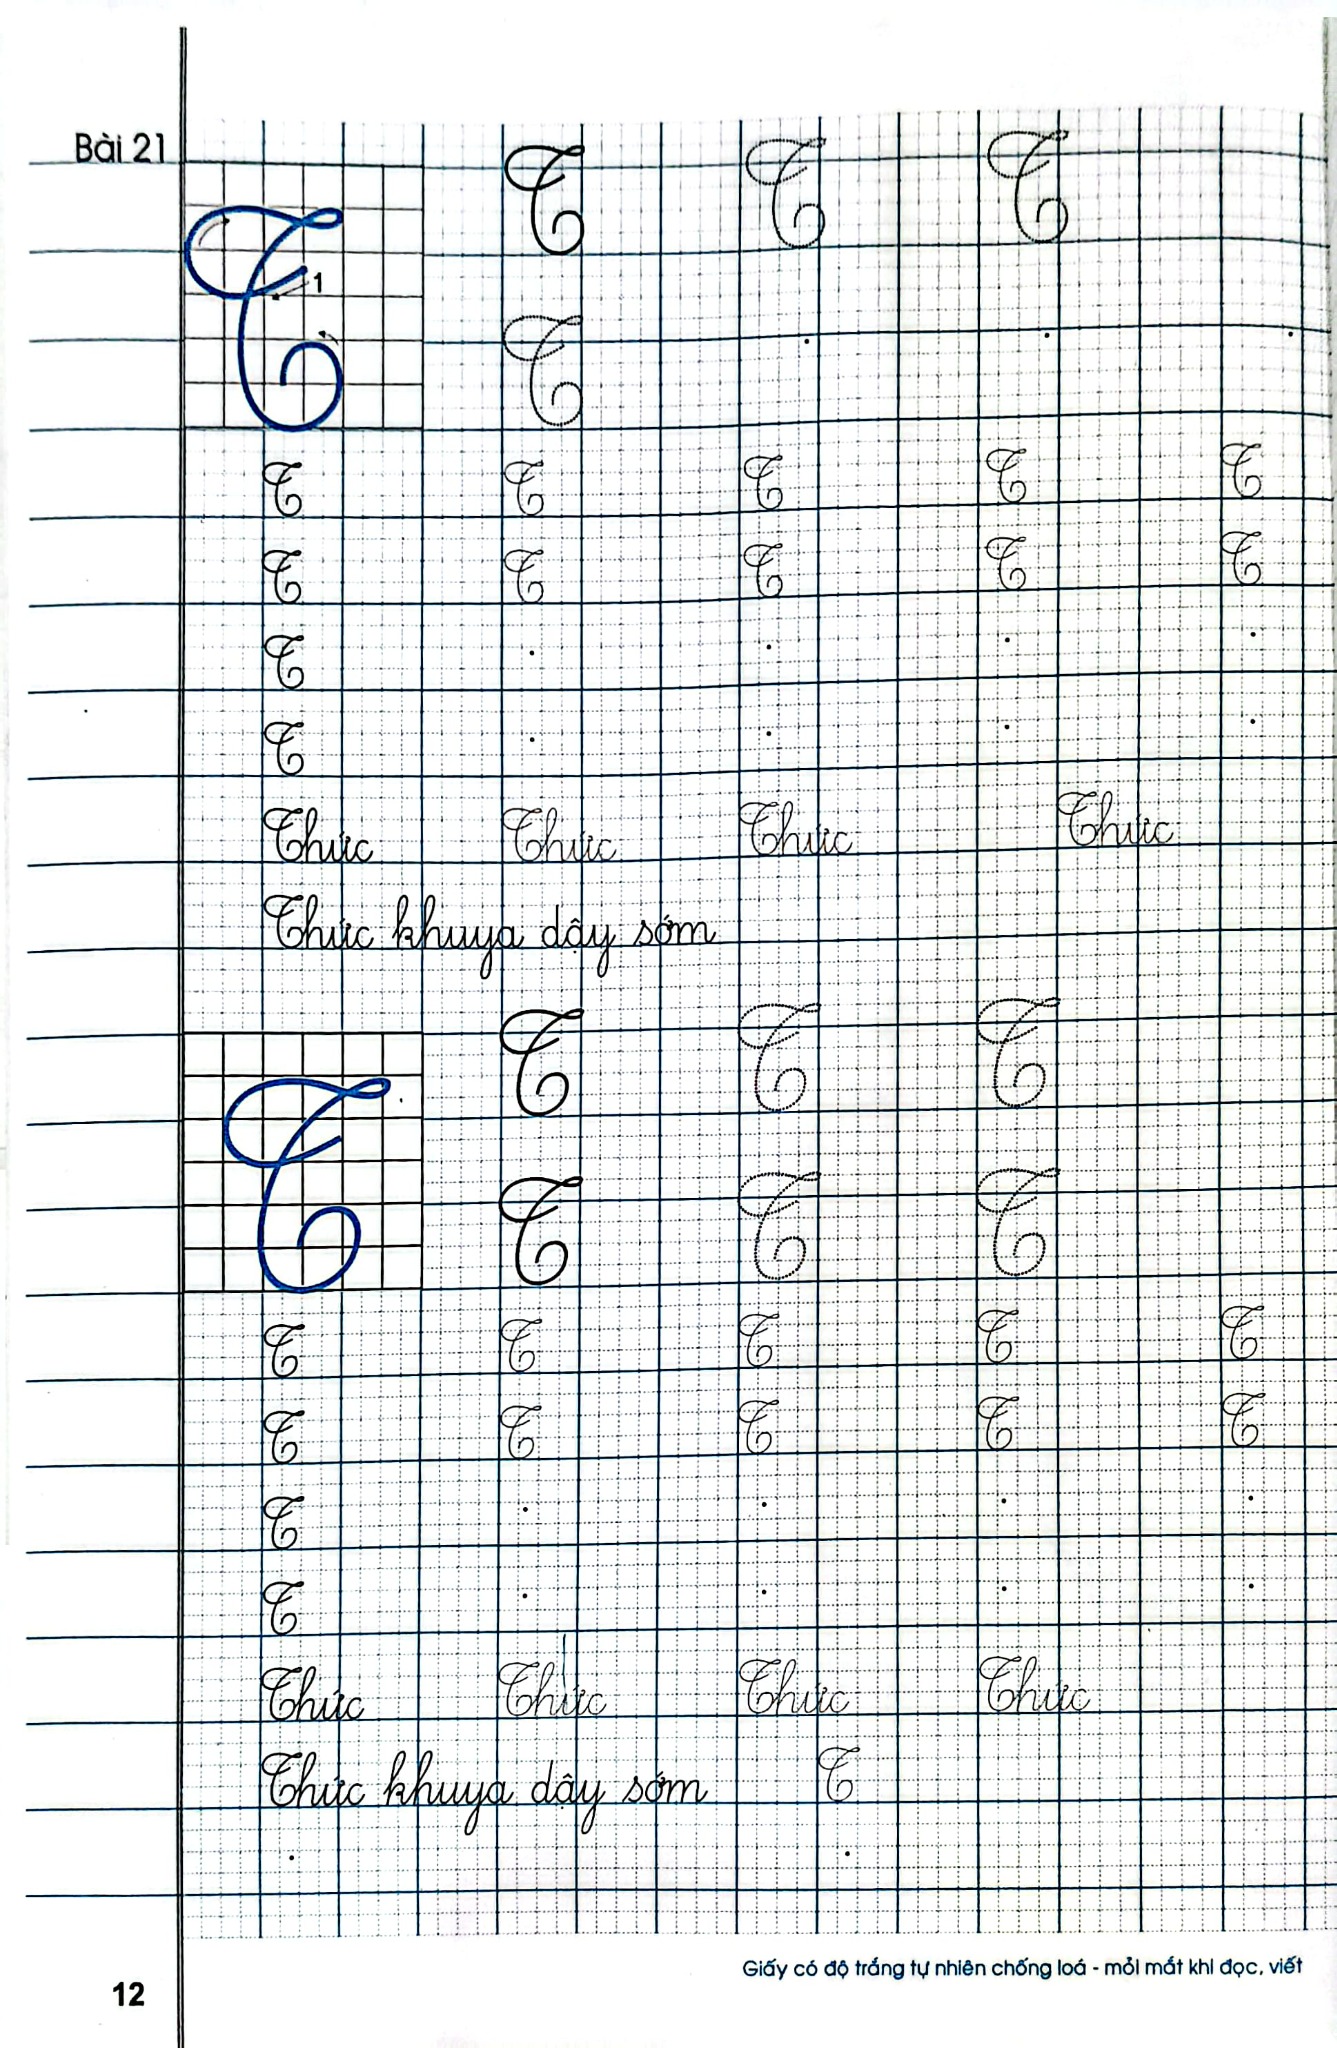 Bài 21
T T T
1
T
T T T T T
T T T T T
T
T
Thức Thức Thức Thức
Thức khuya dậy sớm
T T T
T T T
T T T T T
T T T T T
T
T
Thức Thức Thức Thức
Thức khuya dậy sớm T
Giấy có độ trắng tự nhiên chống loá - mỏi mắt khi đọc, viết
12